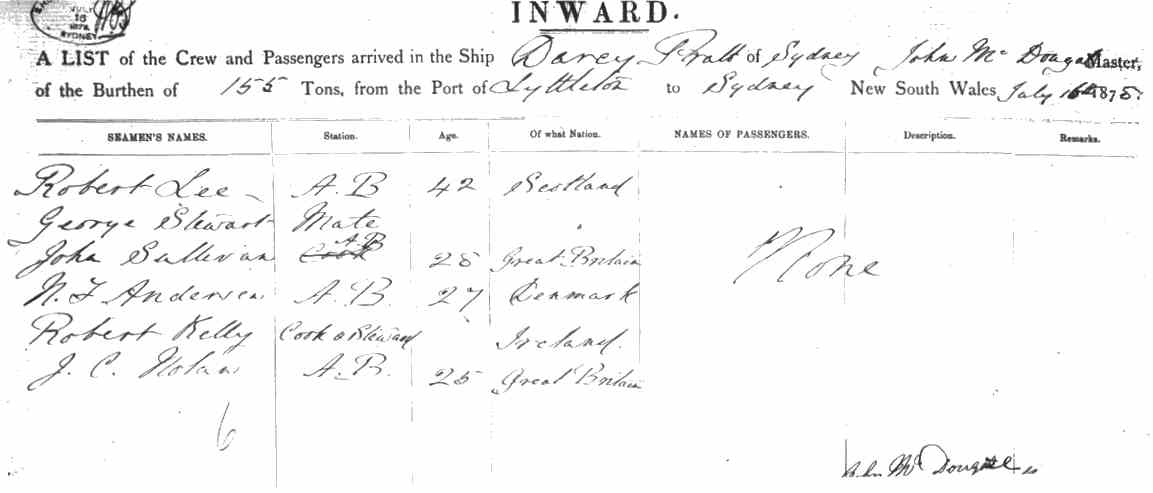 INWARD.
JULY
16
SYDNEY
A LIST of the Crew and Passengers arrived in the Ship Darcy Pratt of Sydney John Mc Dougall Master,
of the Burthen of 155 Tons, from the Port of Lyttleton to Sydney New South Wales July 16th 1875.
SEAMEN'S NAMES. Station. Age. Of what Nation. NAMES OF PASSENGERS. Description. Remarks.
Robert Lee A.B 42 Scotland
George Stewart Mate "
John Sullivan Cook A.B 28 Great Britain None
N. J Andersen A.B. 27 Denmark
Robert Kelly Cook & Steward Ireland.
J. C. Nolan A.B. 25 Great Britain
6
John McDougall